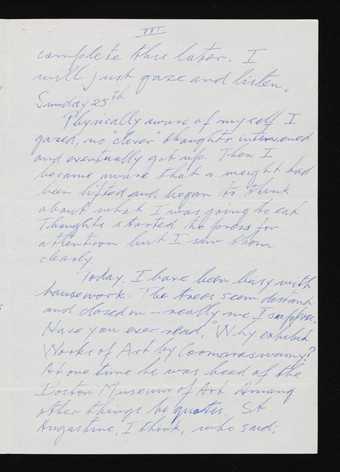 III
complete this later. I
will just gaze and listen.
Sunday 25th
Physically aware of myself I
gazed, no "clever" thoughts intervened
and eventually got up. Then I
became aware that a weight had
been lifted and began to think
about what I was going to eat
Thoughts started to press for
attention but I saw them
clearly
Today, I have been busy with
housework. The trees seem dormant
and closed in — really me I suppose.
Have you ever read, "Why exhibit
Works of Art by Coomaraswamy?
At one time he was head of the
Boston Museum of Art. Among
other things he quotes, St
Augustine, I think, who said;